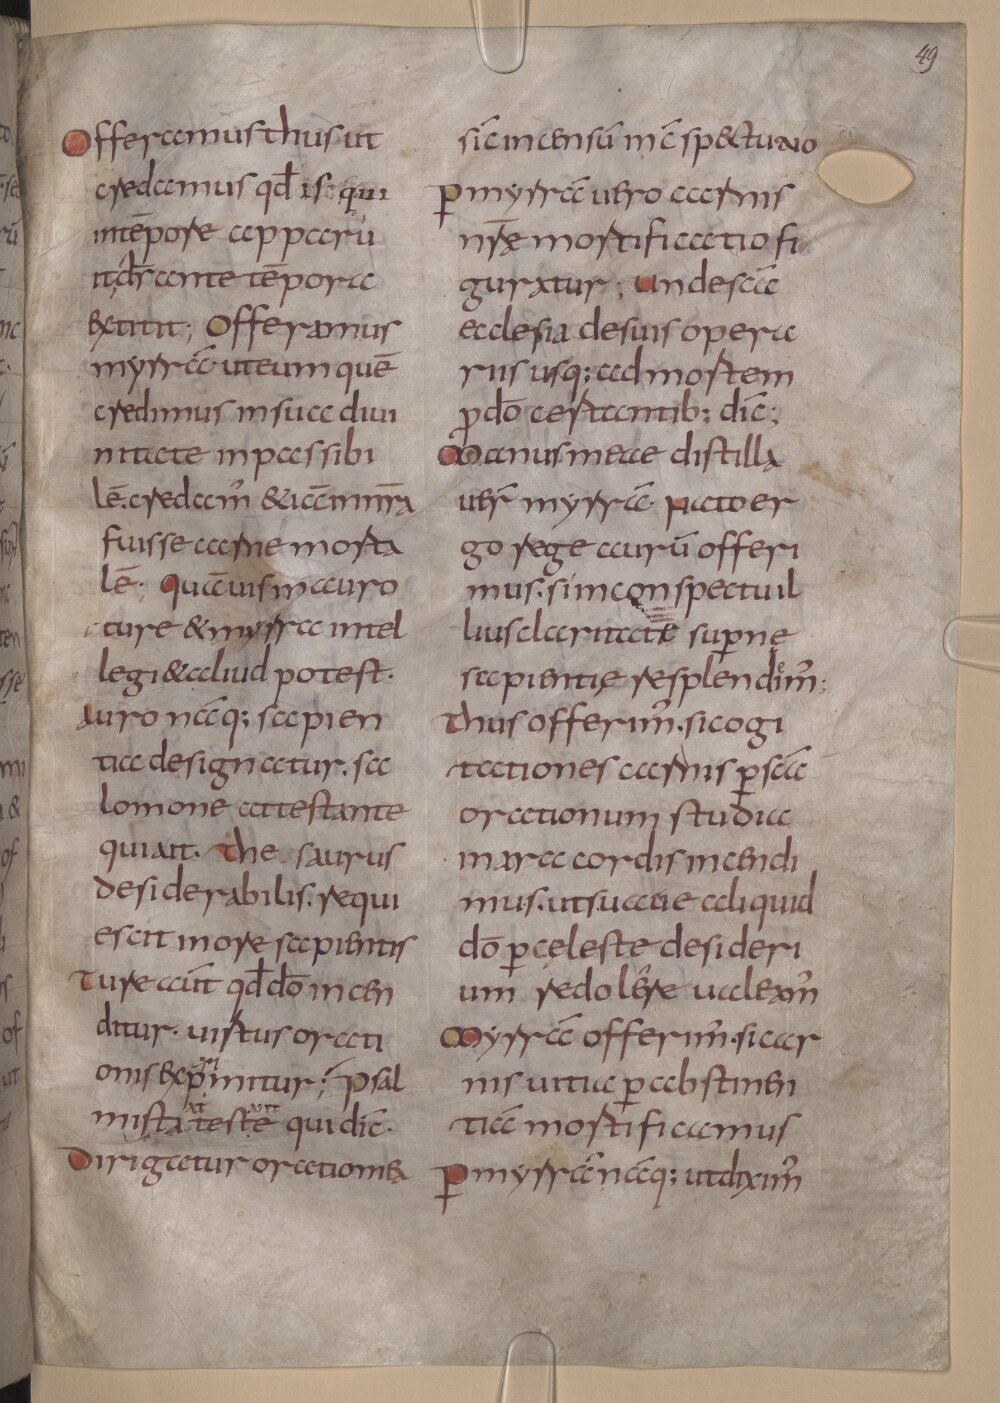 49
Offeramus thus ut
credamus qd̄ is qui
intēpore apparu
it d̄s ante tēpora
extitit; Offeramus
myrrā ut eum quē
credimus in sua divi
nitate inpassibi
lē. credam̄ & iā in nr̄a
fuisse carne morta
lē; Quāvis in auro
ture & myrra intel
legi & aliud potest.
Auro nāq; sapien
tia designatur. sa
lomone attestante
qui ait. Thesaurus
desiderabilis. requi
escit in ore sapientis
Ture aūt qd̄ dō incen
ditur. virtus orati
onis exp̄mitur; Psal
mista teste qui dic̄.
Dirigatur oratio mea
sic̄ incensū in c̄spectu tuo
P myrrā vero carnis
nr̄ę mortificatio fi
guratur; Unde sc̄ā
ecclesia de suis opera
riis usq; ad mortem
p dō certantib; dic̄;
Manus meae distilla
ver̄ myrrā. Nato er
go rege aurū offeri
mus. si in conspectu il
lius claritate supnę
sapientię resplendem̄;
Thus offerim̄. si cogi
tationes carnis p sc̄ā
orationum studia
in ara cordis incendi
mus. ut suave aliquid
dō p cęleste desideri
um redolere valeam̄
Myrrā offerim̄. si car
nis vitia p abstinen
tiā mortificamus
P myrrā nāq; ut dixim̄